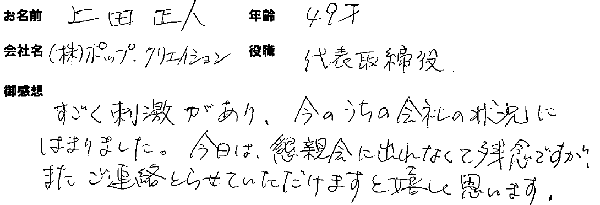 お名前 上田正人 年齢 49才
会社名 (株)ポップ・クリエイション 役職 代表取締役
御感想
すごく刺激があり、今のうちの会社の状況に
はまりました。今日は、懇親会に出れなくて残念ですが、
また ご連絡とらせていただけますと嬉しく思います。